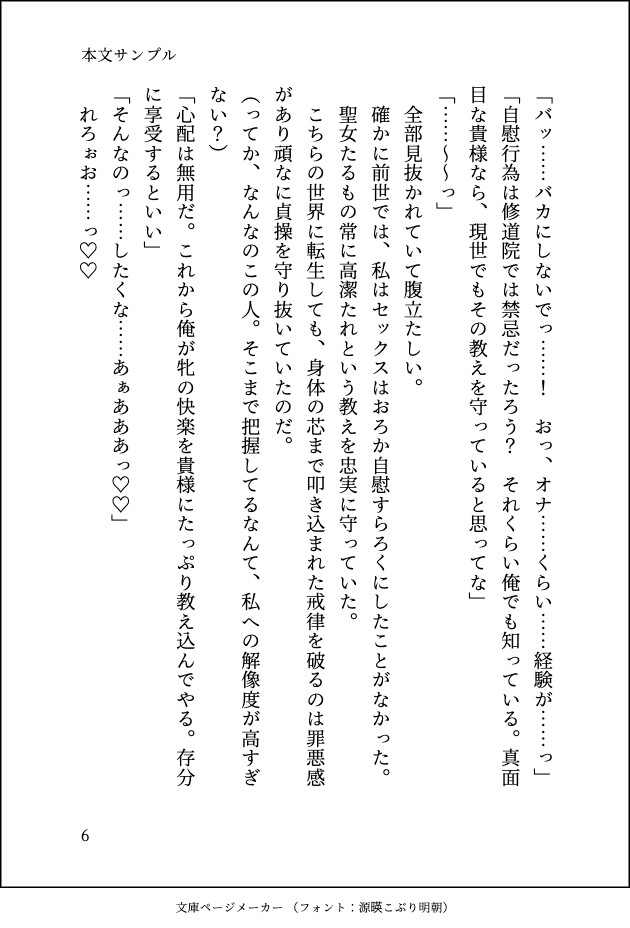 本文サンプル
「バッ……バカにしないでっ……！　おっ、オナ……くらい……経験が……っ」
「自慰行為は修道院では禁忌だったろう？　それくらい俺でも知っている。真面
目な貴様なら、現世でもその教えを守っていると思ってな」
「……～～っ」
　全部見抜かれていて腹立たしい。
　確かに前世では、私はセックスはおろか自慰すらろくにしたことがなかった。
　聖女たるもの常に高潔たれという教えを忠実に守っていた。
　こちらの世界に転生しても、身体の芯まで叩き込まれた戒律を破るのは罪悪感
があり頑なに貞操を守り抜いていたのだ。
（ってか、なんなのこの人。そこまで把握してるなんて、私への解像度が高すぎ
ない？）
「心配は無用だ。これから俺が牝の快楽を貴様にたっぷり教え込んでやる。存分
に享受するといい」
「そんなのっ……したくな……あぁあああっ♡♡」
　れろぉお……っ♡♡
6
文庫ページメーカー（フォント：源暎こぶり明朝）